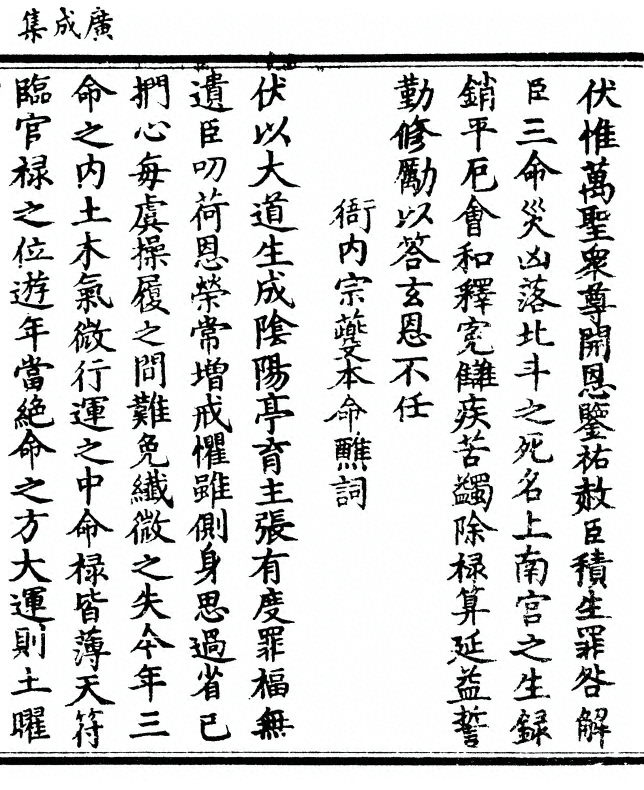 廣成集
伏惟萬聖衆尊開恩鑒祐赦臣積生罪咎解
臣三命災凶落北斗之死名上南宫之生録
銷平厄會和釋寃讎疾苦蠲除禄算延益誓
勤修勵以答玄恩不任
衙内宗夔本命醮詞
伏以大道生成陰陽亭育主張有度罪福無
遺臣叨荷恩榮常増戒懼雖側身思過省已
捫心每虞操履之間難免纖微之失今年三
命之内土木氣微行運之中命禄皆薄天符
臨官禄之位遊年當絶命之方大運則土曜